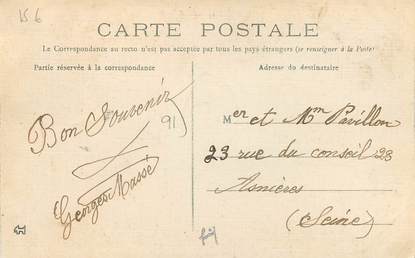 15.6
CARTE POSTALE
Le Correspondance au recto n'est pas acceptée par tous les pays étrangers (se renseigner à la Poste)
Partie réservée à la correspondance
Adresse du destinataire
Bon Souvenir
91
Georges Massé
Mer et Mm Pavillon
23 rue du conseil 23
Asnières
(Seine)